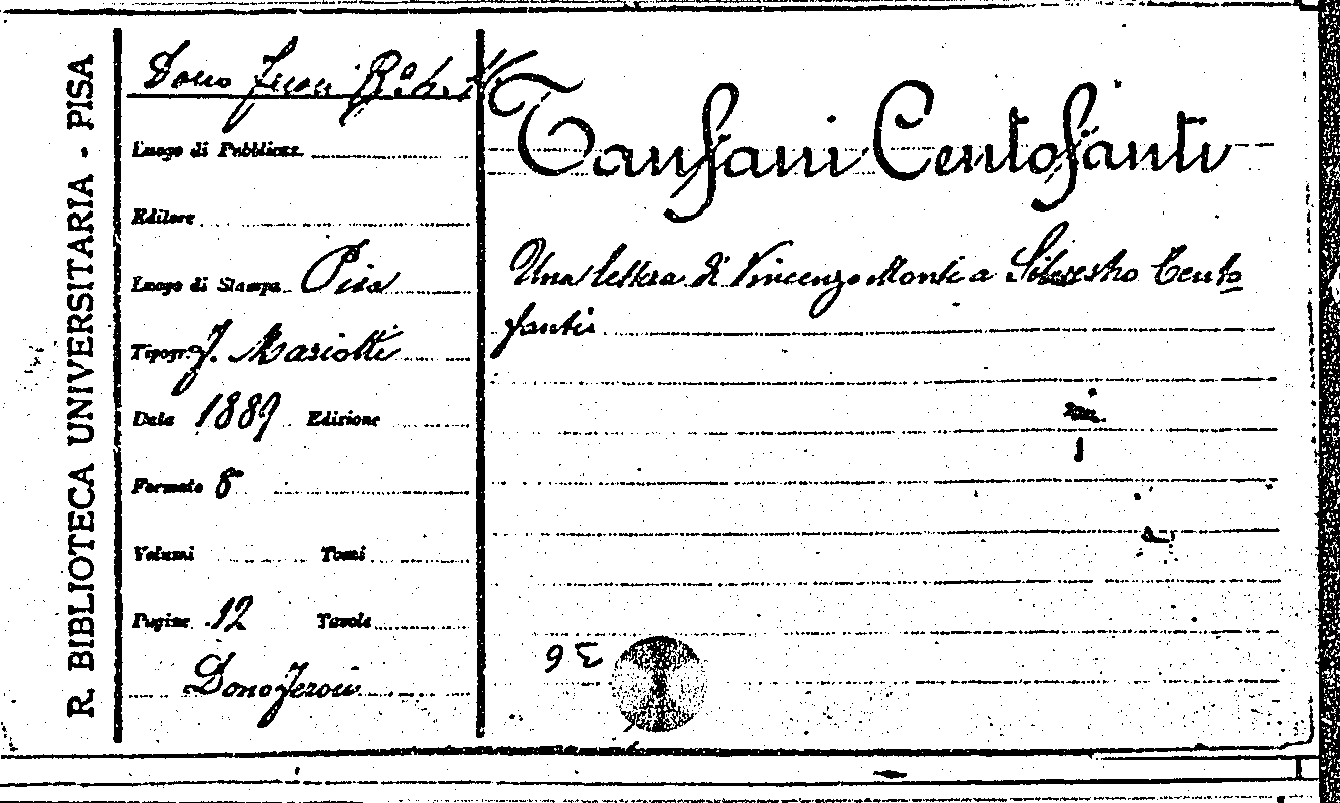 R. BIBLIOTECA UNIVERSITARIA - PISA
Dono
Luogo di Pubblicaz.
Editore
Luogo di Stampa Pisa
Tipogr. F. Mariotti
Data 1889 Edizione
Formato 8°
Volumi Tomi
Pagine 12 Tavole
Dono Feroci
Tanfani Centofanti
Una lettera di Vincenzo Monti a Silvestro Cento
fanti